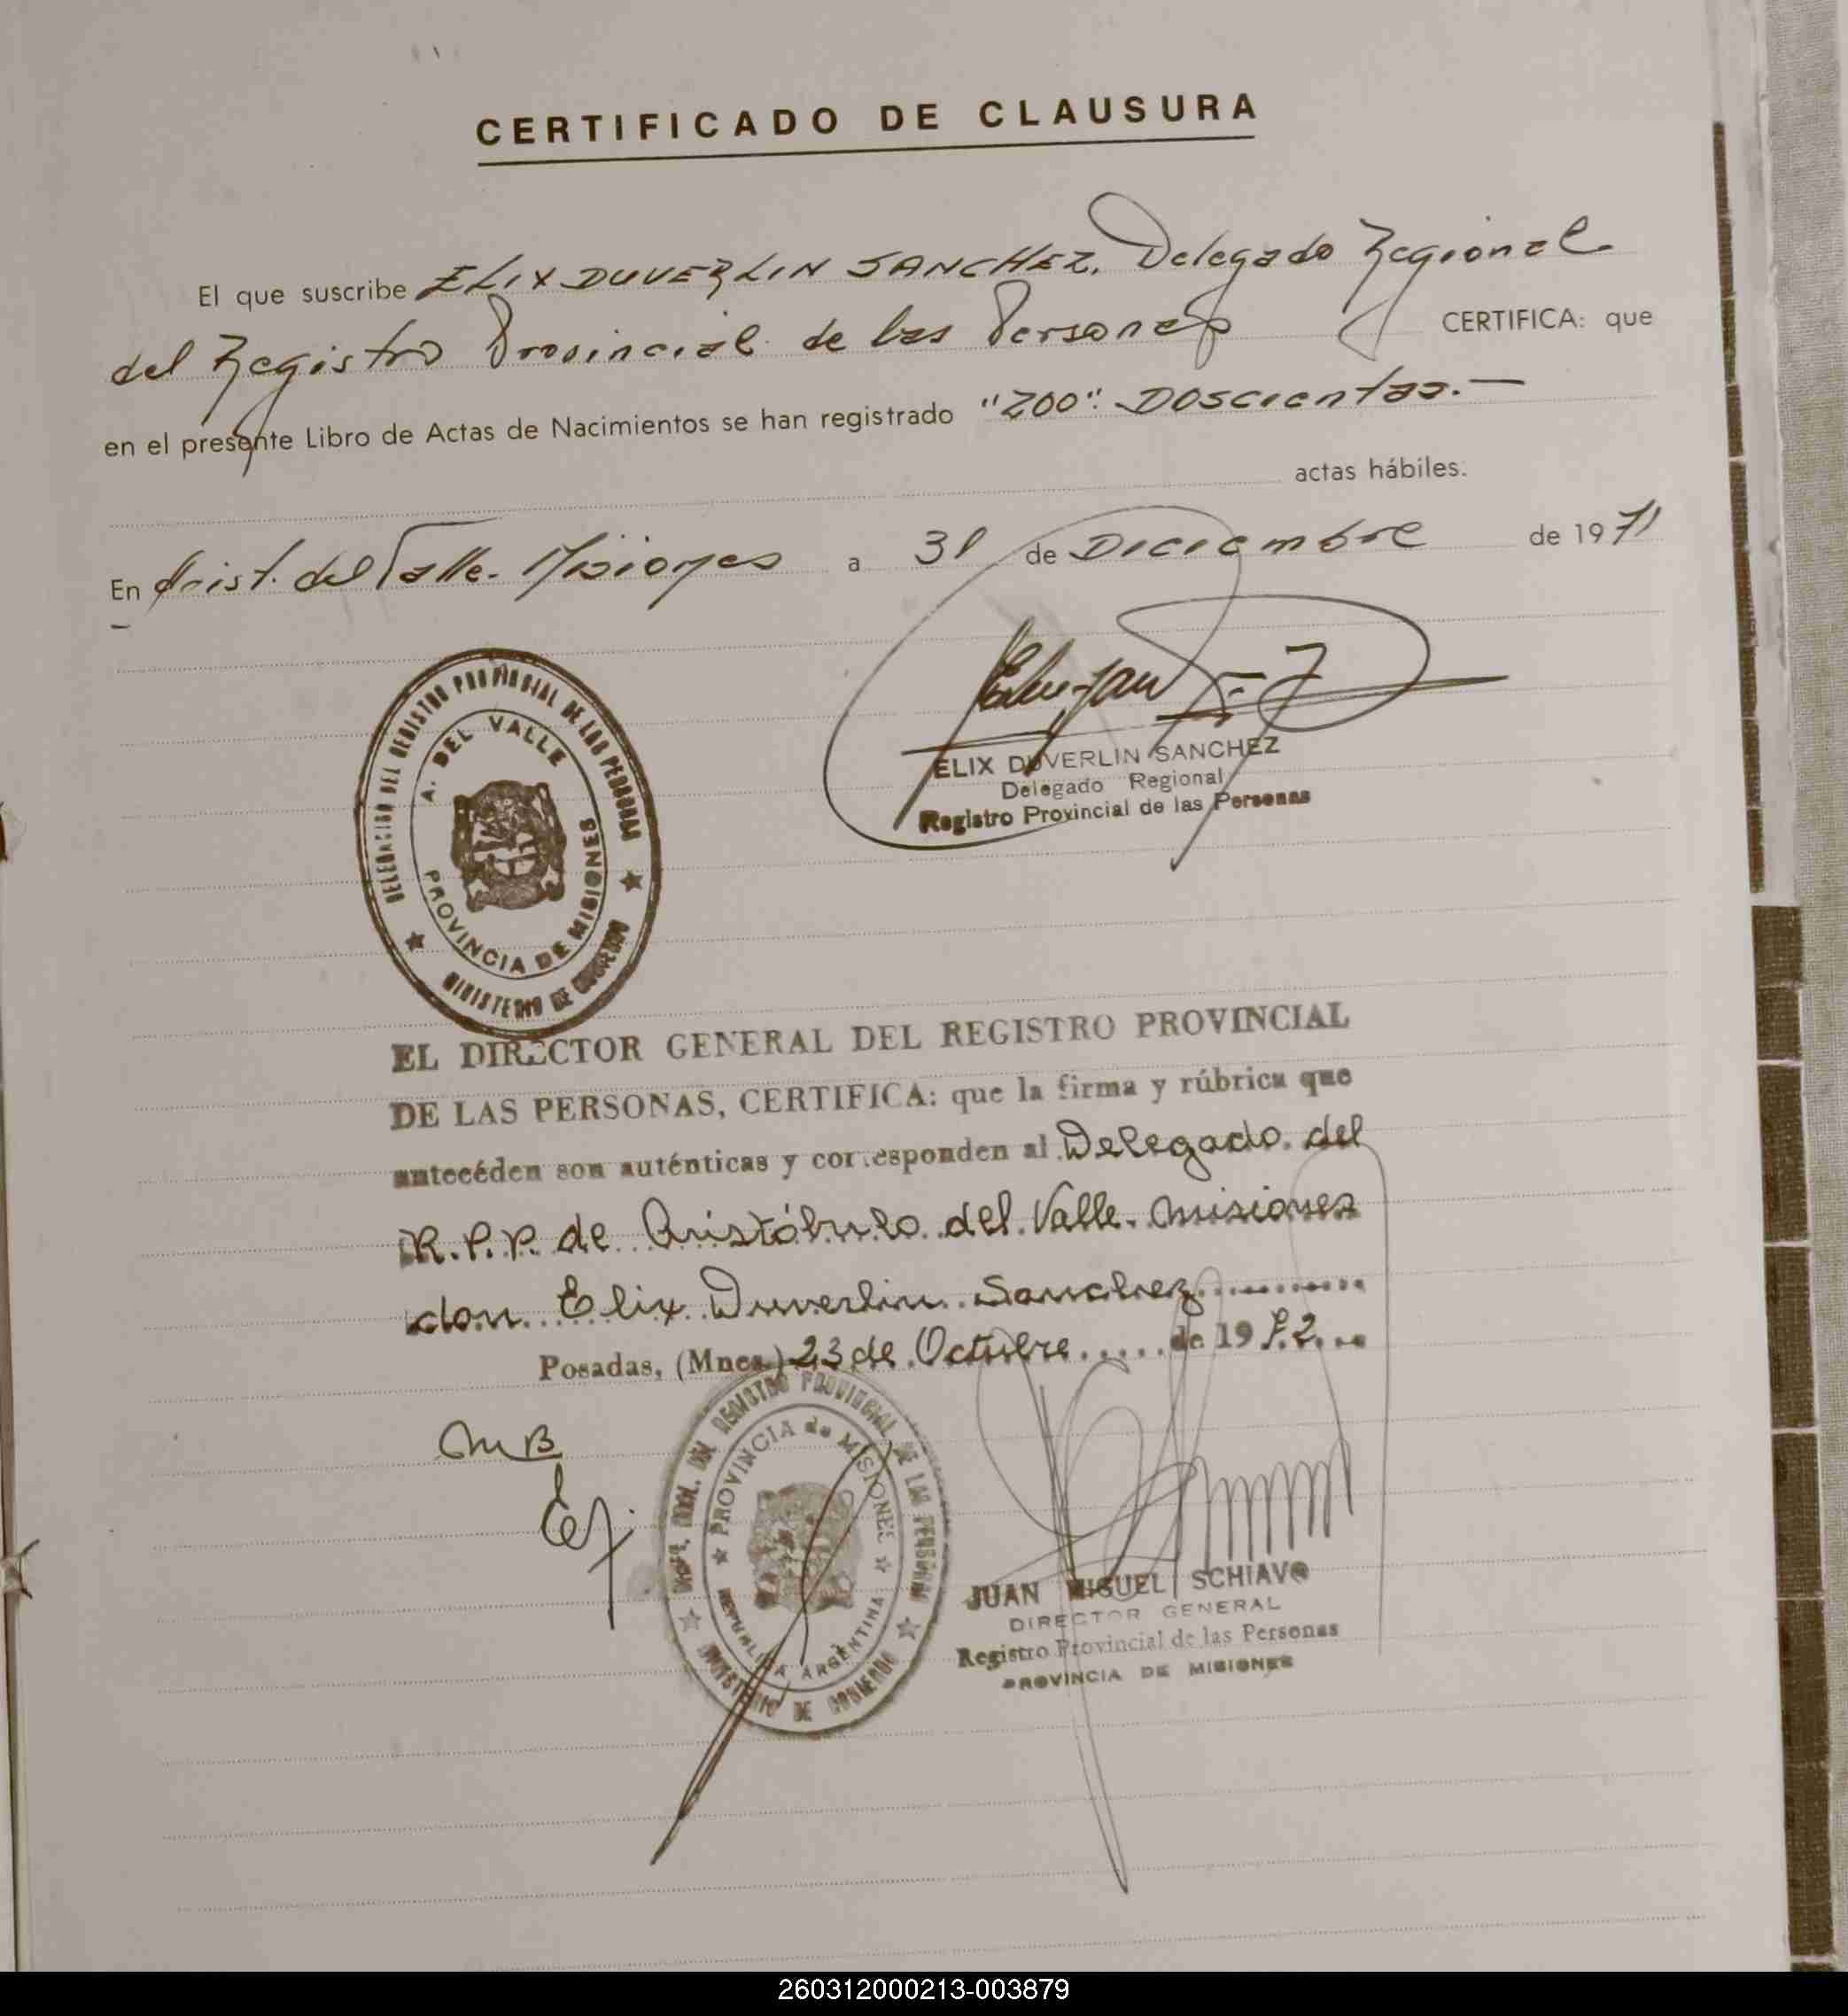 CERTIFICADO DE CLAUSURA
El que suscribe ELIX DUVERLIN SANCHEZ, Delegado Regional
del Registro Provincial de las Personas CERTIFICA: que
en el presente Libro de Actas de Nacimientos se han registrado "200": Doscientas.—
actas hábiles.
En Arist. del Valle. Misiones a 31 de Diciembre de 1971
DELEGACION DEL REGISTRO PROVINCIAL DE LAS PERSONAS
A. DEL VALLE
PROVINCIA DE MISIONES
MINISTERIO DE GOBIERNO
ELIX DUVERLIN SANCHEZ
Delegado Regional
Registro Provincial de las Personas
EL DIRECTOR GENERAL DEL REGISTRO PROVINCIAL
DE LAS PERSONAS, CERTIFICA: que la firma y rúbrica que
antecéden son auténticas y corresponden al Delegado del
R.P.P. de Aristóbulo del Valle. Misiones
don Elix Duverlin Sanchez
Posadas, (Mnes.) 23 de Octubre de 1972
MB
DIREC. GRAL. DEL REGISTRO PROVINCIAL DE LAS PERSONAS
PROVINCIA de MISIONES
REPUBLICA ARGENTINA
MINISTERIO DE GOBIERNO
JUAN MIGUEL SCHIAVO
DIRECTOR GENERAL
Registro Provincial de las Personas
PROVINCIA DE MISIONES
260312000213-003879